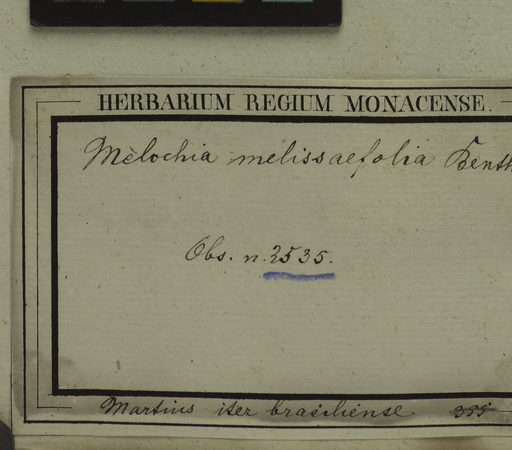 HERBARIUM REGIUM MONACENSE.
Melochia melissaefolia Benth
Obs. n. 2535.
Martius iter brasiliense 355